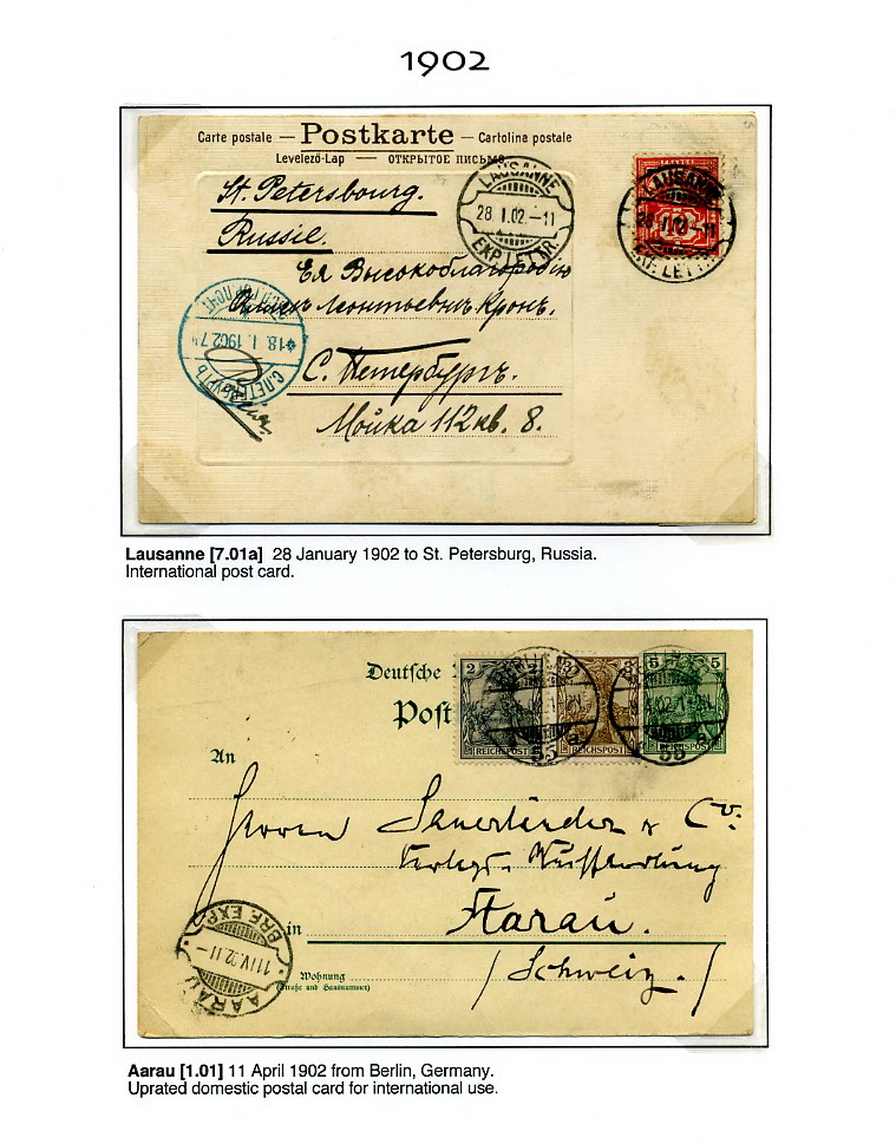 1902
Carte postale — Postkarte — Cartolina postale
Levelező-Lap — ОТКРЫТОЕ ПИСЬМО
LAUSANNE
28. I. 02. – 11
EXP. LETTR.
LAUSANNE
28. I. 02 – 11
EXP. LETTR.
10
St. Petersbourg.
Russie.
Ея Высокоблагородію
Леонтьевнѣ Кронъ.
С. Петербургъ.
Мойка 112 кв. 8.
С. ПЕТЕРБУРГЪ
18. I. 1902. 7
Lausanne [7.01a] 28 January 1902 to St. Petersburg, Russia.
International post card.
Deutsche
Post
2 3 3 5 5
REICHSPOST REICHSPOST REICHSPOST
BERLIN
55
a
An
Herren Sauerländer & Co.
Verlags
Aarau.
in
(Schweiz.)
Wohnung
(Straße und Hausnummer)
AARAU
11 IV. 02. 11 –
BRF. EXP.
Aarau [1.01] 11 April 1902 from Berlin, Germany.
Uprated domestic postal card for international use.